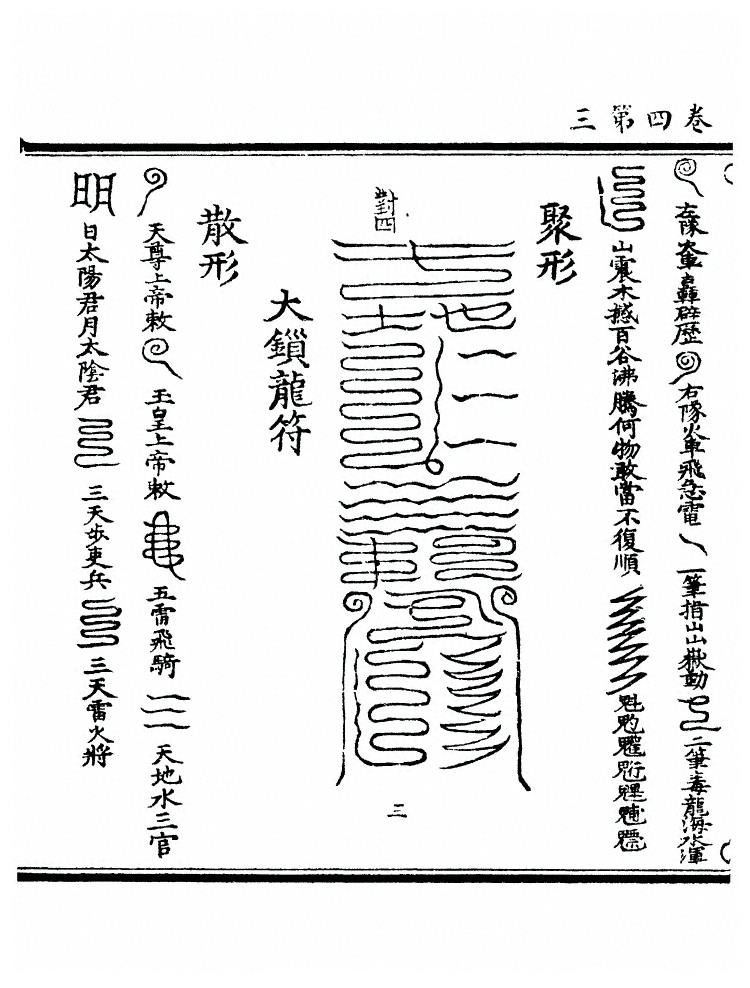 卷四第三
左隊火車轟霹歷 右隊火車飛急電 一筆指山山撼動 二筆毒龍海水渾
山震木撼百谷沸騰何物敢當不復順
聚形
對四
三
大鎖龍符
散形
天尊上帝敕 玉皇上帝敕 五雷飛騎 天地水三官
明 日太陽君月太陰君 三天步吏兵 三天雷火將